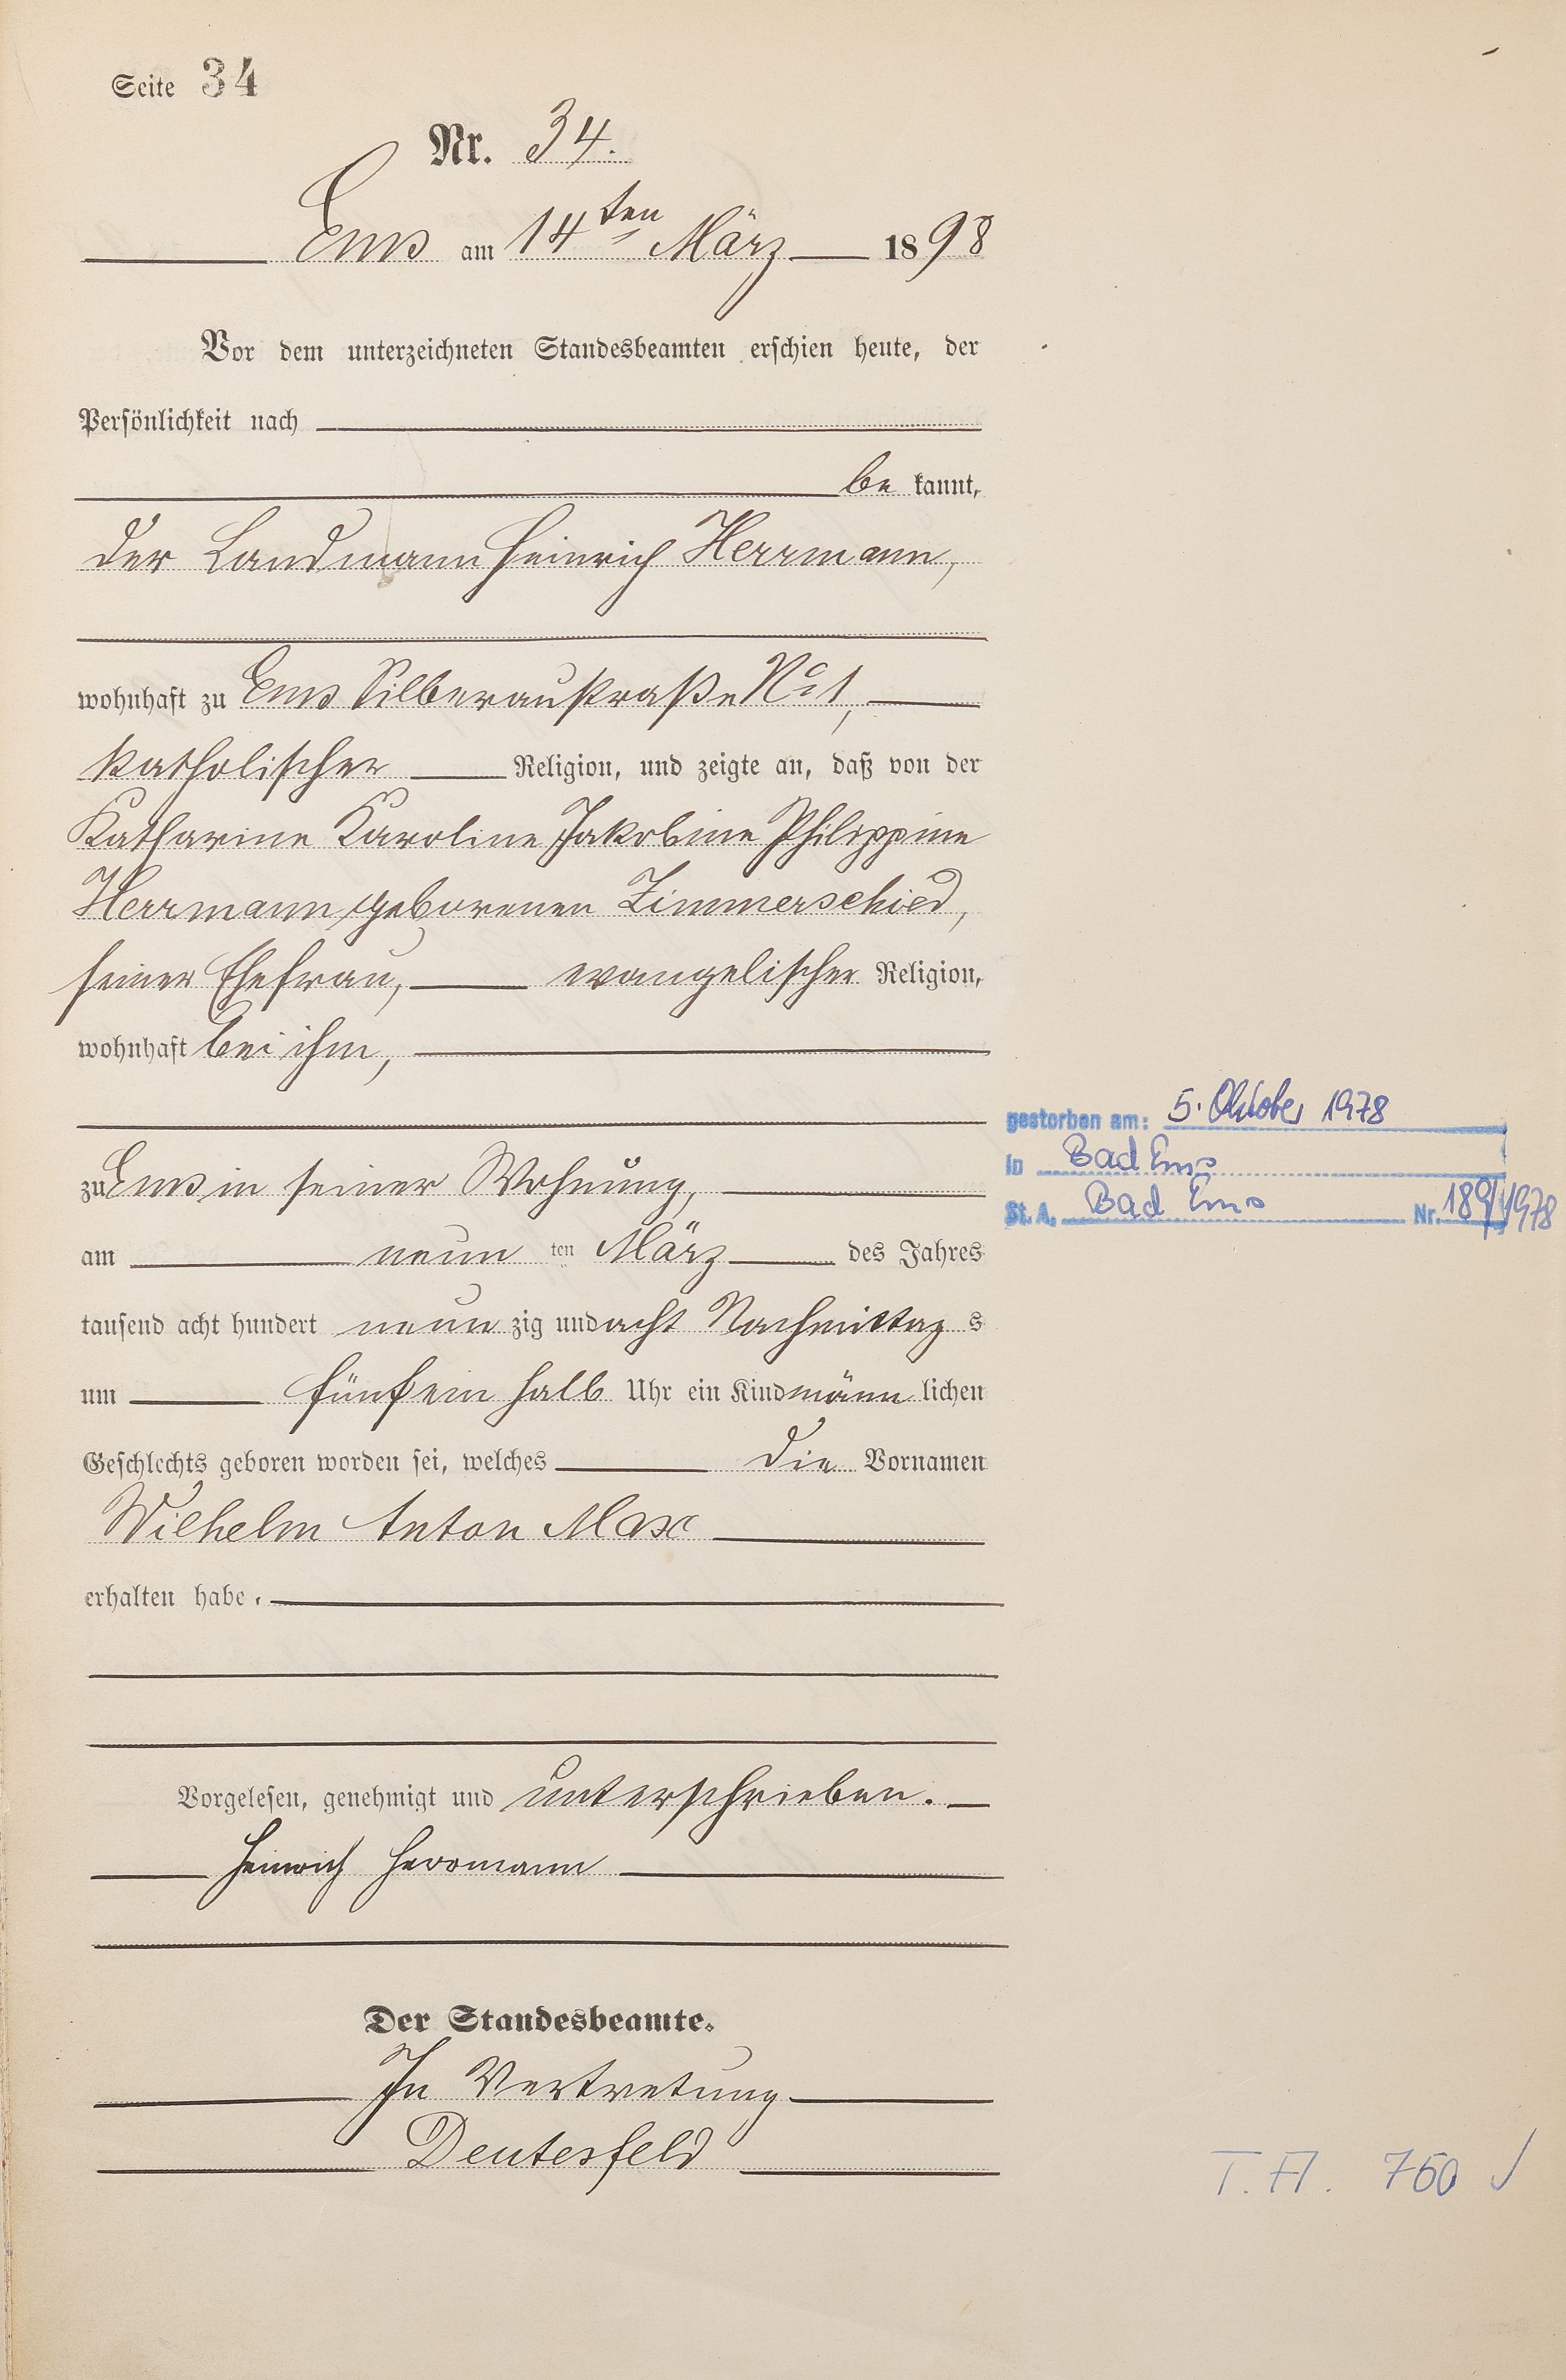 Seite 34
Nr. 34.
Ems am 14ten März 1898
Vor dem unterzeichneten Standesbeamten erschien heute, der
Persönlichkeit nach
be kannt,
der Landmann Heinrich Herrmann,
wohnhaft zu Ems Silberaustraße No 1,
katholischer Religion, und zeigte an, daß von der
Katharine Karoline Jakobine Philippine
Herrmann geborenen Zimmerschied,
seiner Ehefrau, evangelischer Religion,
wohnhaft bei ihm,
zu Ems in seiner Wohnung,
am neun ten März des Jahres
tausend acht hundert neun zig und acht Nachmittag s
um fünf ein halb Uhr ein Kind männ lichen
Geschlechts geboren worden sei, welches die Vornamen
Wilhelm Anton Max
erhalten habe.
Vorgelesen, genehmigt und unterschrieben.
Heinrich Herrmann
Der Standesbeamte.
In Vertretung
Deutesfeld
gestorben am: 5. Oktober 1978
in Bad Ems
St. A. Bad Ems Nr. 189/1978
T. A. 760